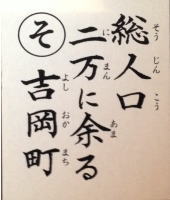 総人口
二万に余る
吉岡町
そ
そうじんこう
にまんあま
よしおかまち